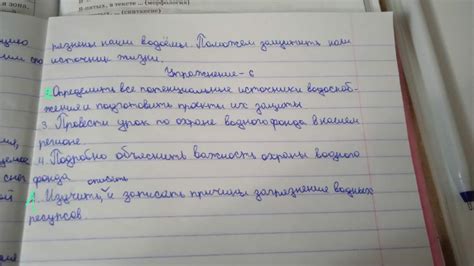 в-пятых, в тексте ... (морфология)
(синтаксис)
я зона.
резнены наши водоёмы. Поможем защитить нам
источник жизни.
Упражнение-6
2. Определить все потенциальные источники водоснаб-
жения и подготовить проекты их защиты
3. Провести урок по охране водного фонда в нашем
регионе.
4. Подробно объяснить важность охраны водного
фонда
описать
1. Изучить, и записать причины загрязнение водных
ресурсов.